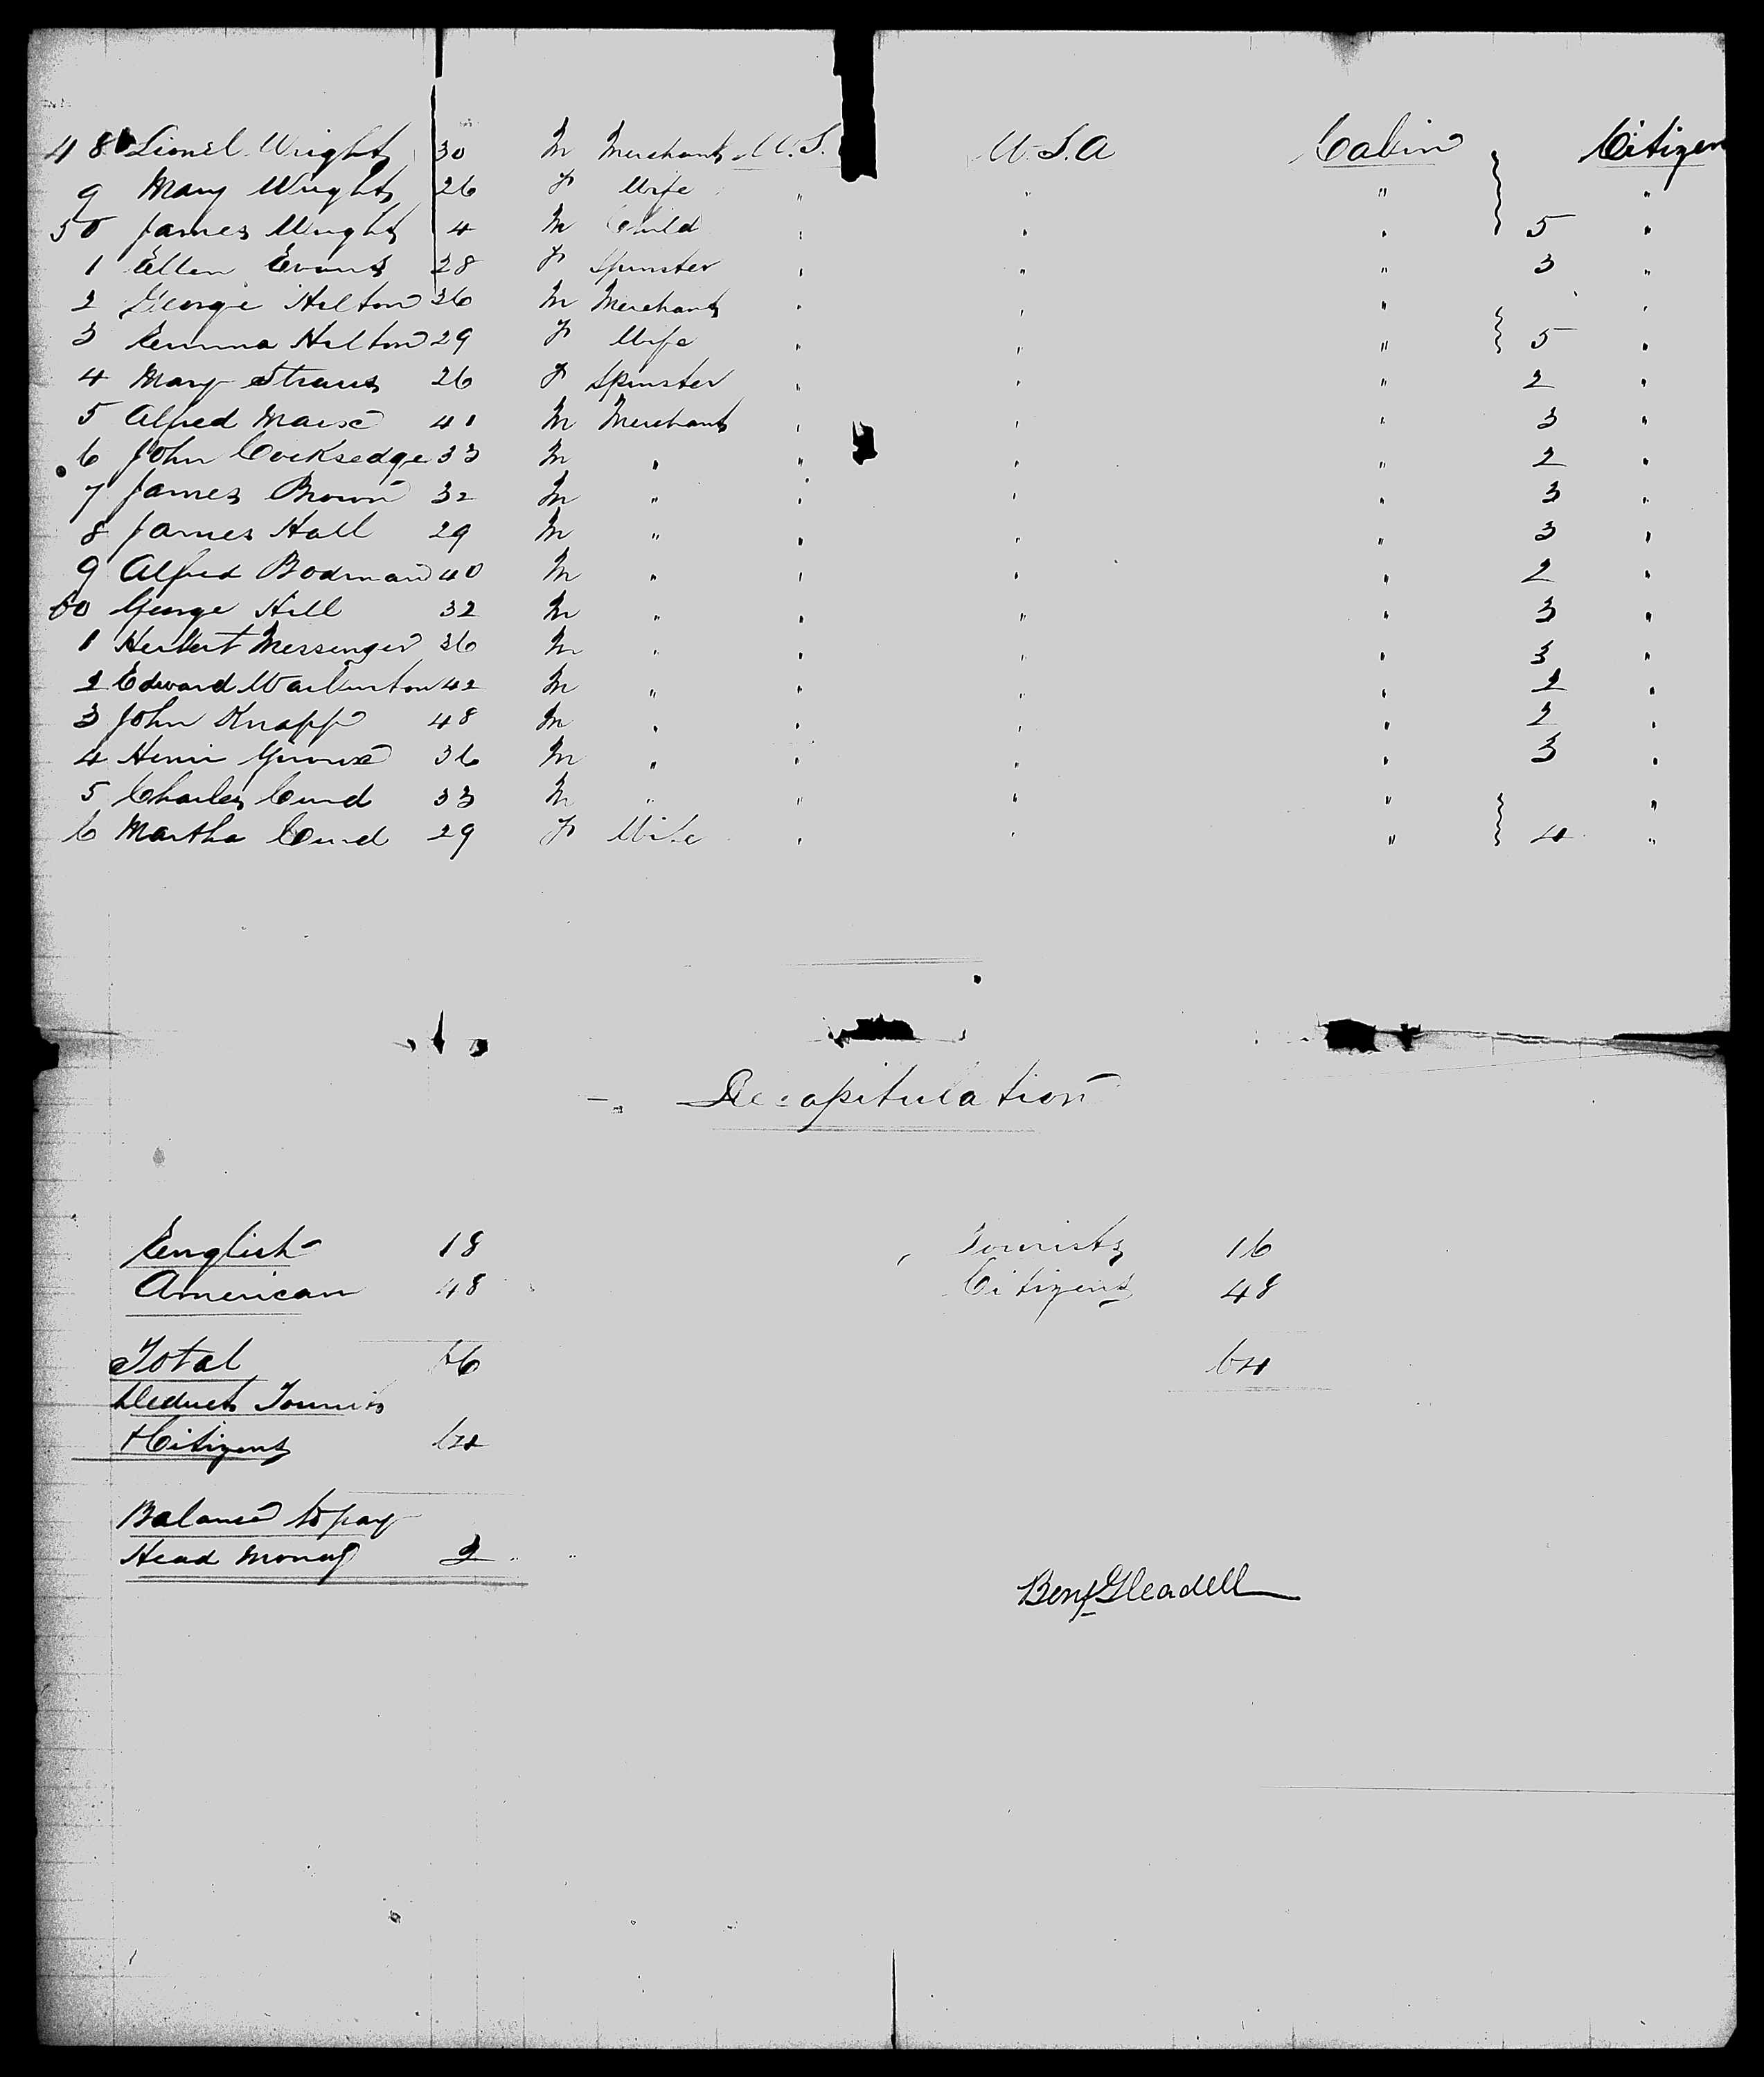 48 Lionel Wright 30 M Merchant U.S. U.S.A Cabin Citizen
9 Mary Wright 26 F Wife " " " "
50 James Wright 4 M Child " " " 5 "
1 Ellen Evans 28 F Spinster " " " 3 "
2 George Hilton 36 M Merchant " " " "
3 Emma Hilton 29 F Wife " " " 5 "
4 Mary Straus 26 F Spinster " " " 2 "
5 Alfred Marx 41 M Merchant " " " 3 "
6 John Cocksedge 33 M " " " " 2 "
7 James Brown 32 M " " " " 3 "
8 James Hall 29 M " " " " 3 "
9 Alfred Bodman 40 M " " " " 2 "
60 George Hill 32 M " " " " 3 "
1 Herbert Messenger 36 M " " " " 3 "
2 Edward Warburton 42 M " " " " 2 "
3 John Knapp 48 M " " " " 2 "
4 Henri 36 M " " " " 3 "
5 Charles Curd 33 M " " " " "
6 Martha Curd 29 F Wife " " " 4 "
Recapitulation
English 18 Tourists 16
American 48 Citizens 48
Total 66 64
Deduct Tourists
+ Citizens 64
Balance to pay
Head Money 2
Benj Gleadell